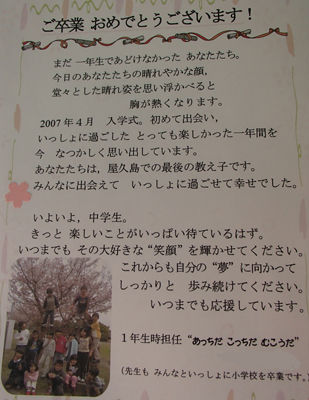 ご卒業 おめでとうございます！
まだ 一年生であどけなかった あなたたち。
今日のあなたたちの晴れやかな顔,
堂々とした晴れ姿を思い浮かべると
胸が熱くなります。
2007年4月 入学式。初めて出会い,
いっしょに過ごした とっても楽しかった一年間を
今 なつかしく思い出しています。
あなたたちは，屋久島での最後の教え子です。
みんなに出会えて いっしょに過ごせて幸せでした。
いよいよ，中学生。
きっと 楽しいことがいっぱい待ているはず。
いつまでも その大好きな“笑顔”を輝かせてください。
これからも自分の“夢”に向かって
しっかりと 歩み続けてください。
いつまでも応援しています。
1年生時担任 “あっちだ こっちだ むこうだ”
(先生も みんなといっしょに小学校を卒業です。)